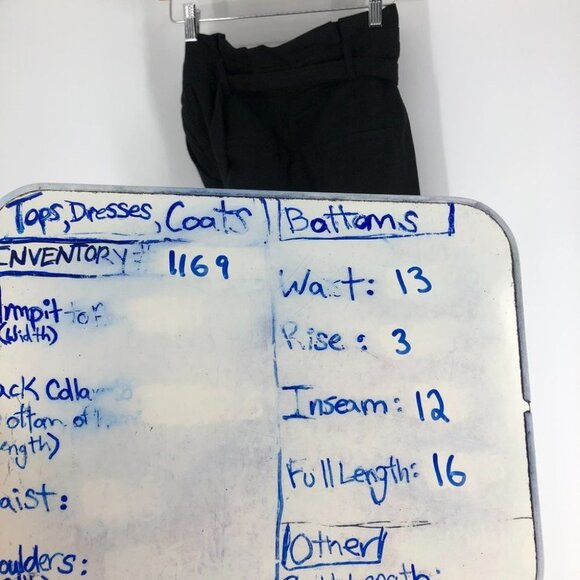 Tops, Dresses, Coats
INVENTORY# 1169
(Width)
ack Colla
ength)
aist:
oulders:
Bottoms
Wa t: 13
Rise: 3
Inseam: 12
Full Length: 16
Other